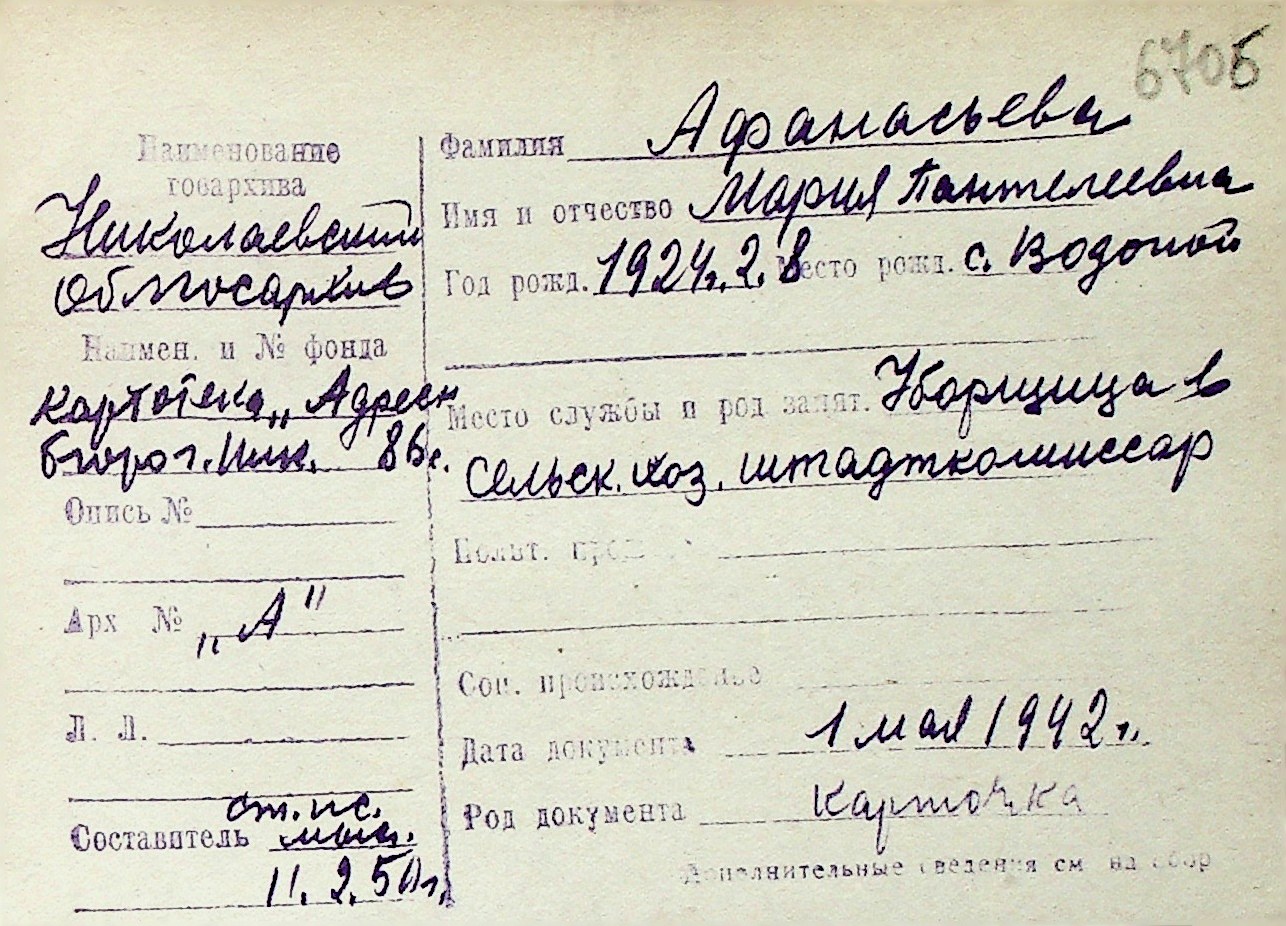 6706
Наименование
госархива
Николаевский
облгосархив
Наимен. и № фонда
картотека „Адресн
бюро г. Ник. 86 с.
Опись №
Арх № „А"
Л. Л.
Составитель ст. пс.
11. 2. 50 г.
Фамилия Афанасьева
Имя и отчество Мария Пантелеевна
Год рожд. 1924г. 2. 8 Место рожд. с. Водопой
Место службы и род занят. Уборщица в
сельск. хоз. штадткомиссар
Соц. происхожденье
Дата документа 1 мая 1942 г.
Род документа карточка
Дополнительные сведения см на обор